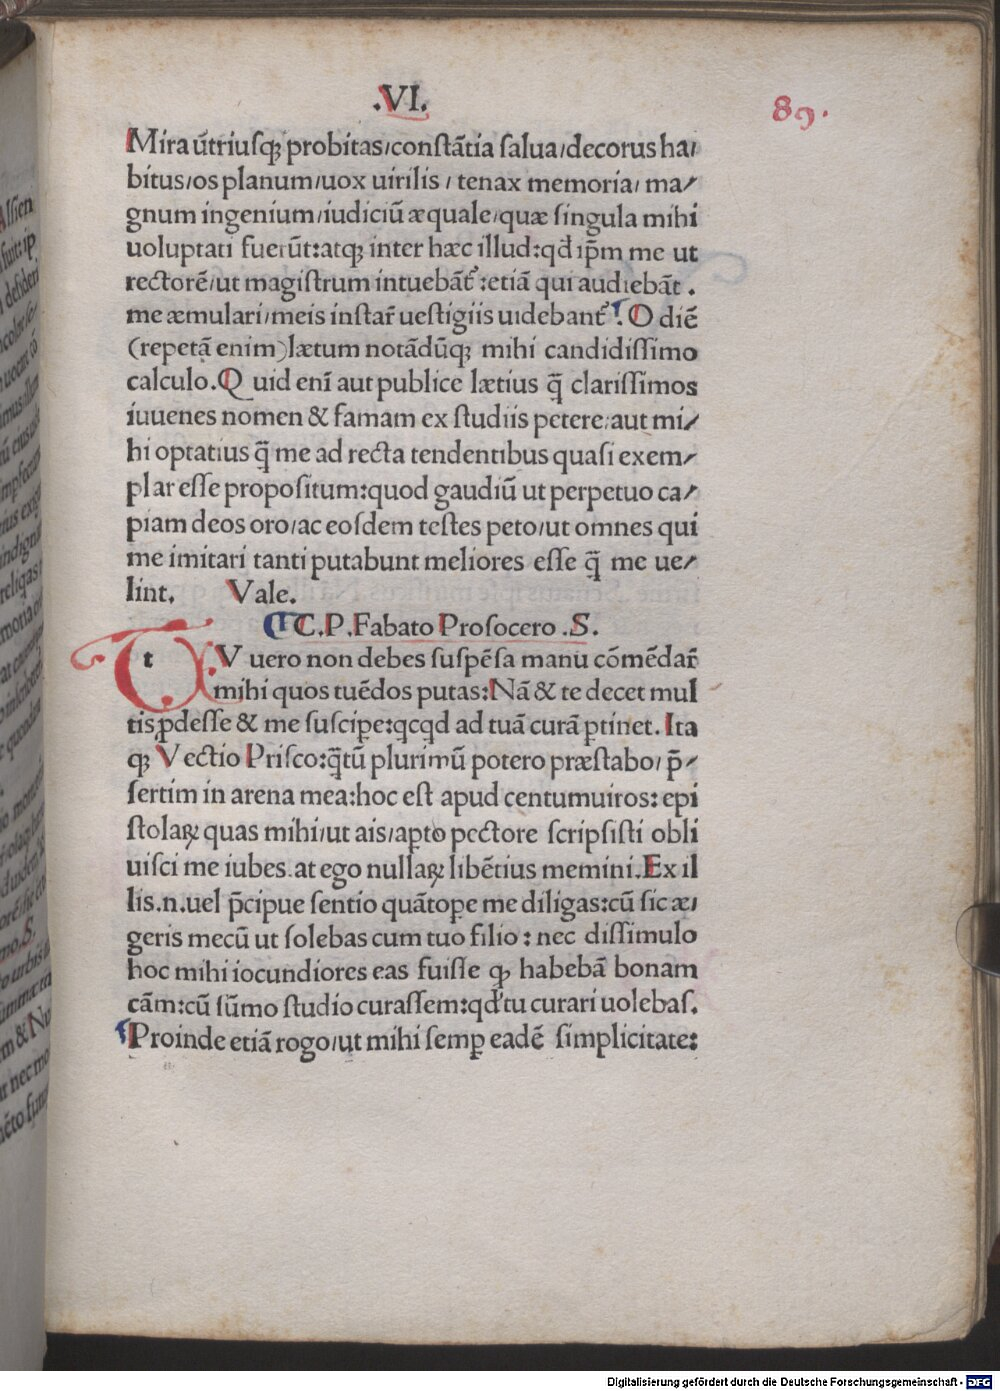 .VI.
89.
Mira ūtriusqꝫ probitas/constātia salua/decorus ha/
bitus/os planum/uox uirilis / tenax memoria/ ma/
gnum ingenium/iudiciū æquale/quæ singula mihi
uoluptati fuerūt:atqꝫ inter hæc illud:qđ ip̄m me ut
rectorē/ut magistrum intuebāt᷑ :etiā qui audiebāt .
me æmulari/meis instar̄ uestigiis uidebant᷑ . O diē
(repetā enim)lætum notādūqꝫ mihi candidissimo
calculo.Q uid enī aut publice lætius q̄ clarissimos
iuuenes nomen & famam ex studiis petere:aut mi/
hi optatius q̄ me ad recta tendentibus quasi exem/
plar esse propositum:quod gaudiū ut perpetuo ca/
piam deos oro/ac eosdem testes peto/ut omnes qui
me imitari tanti putabunt meliores esse q̄ me ue/
lint. Vale.
C.P.Fabato Prosocero .S.
t V uero non debes suspēsa manu cōmēdar̄
mihi quos tuēdos putas:Nā & te decet mul
tis ꝓdesse & me suscipe:qcqd ad tuā curā ꝑtinet. Ita
qꝫ Vectio Prisco:q̄tū plurimū potero præstabo/ p̄/
sertim in arena mea:hoc est apud centumuiros: epi
stolaꝝ quas mihi/ut ais/apto pectore scripsisti obli
uisci me iubes.at ego nullaꝝ libētius memini.Ex il
lis.n.uel p̄cipue sentio quātope me diligas:cū sic æ/
geris mecū ut solebas cum tuo filio : nec dissimulo
hoc mihi iocundiores eas fuisse qꝫ habebā bonam
cām:cū sūmo studio curassem:qđ tu curari uolebas.
Proinde etiā rogo/ut mihi semꝑ eadē simplicitate:
Digitalisierung gefördert durch die Deutsche Forschungsgemeinschaft - DFG